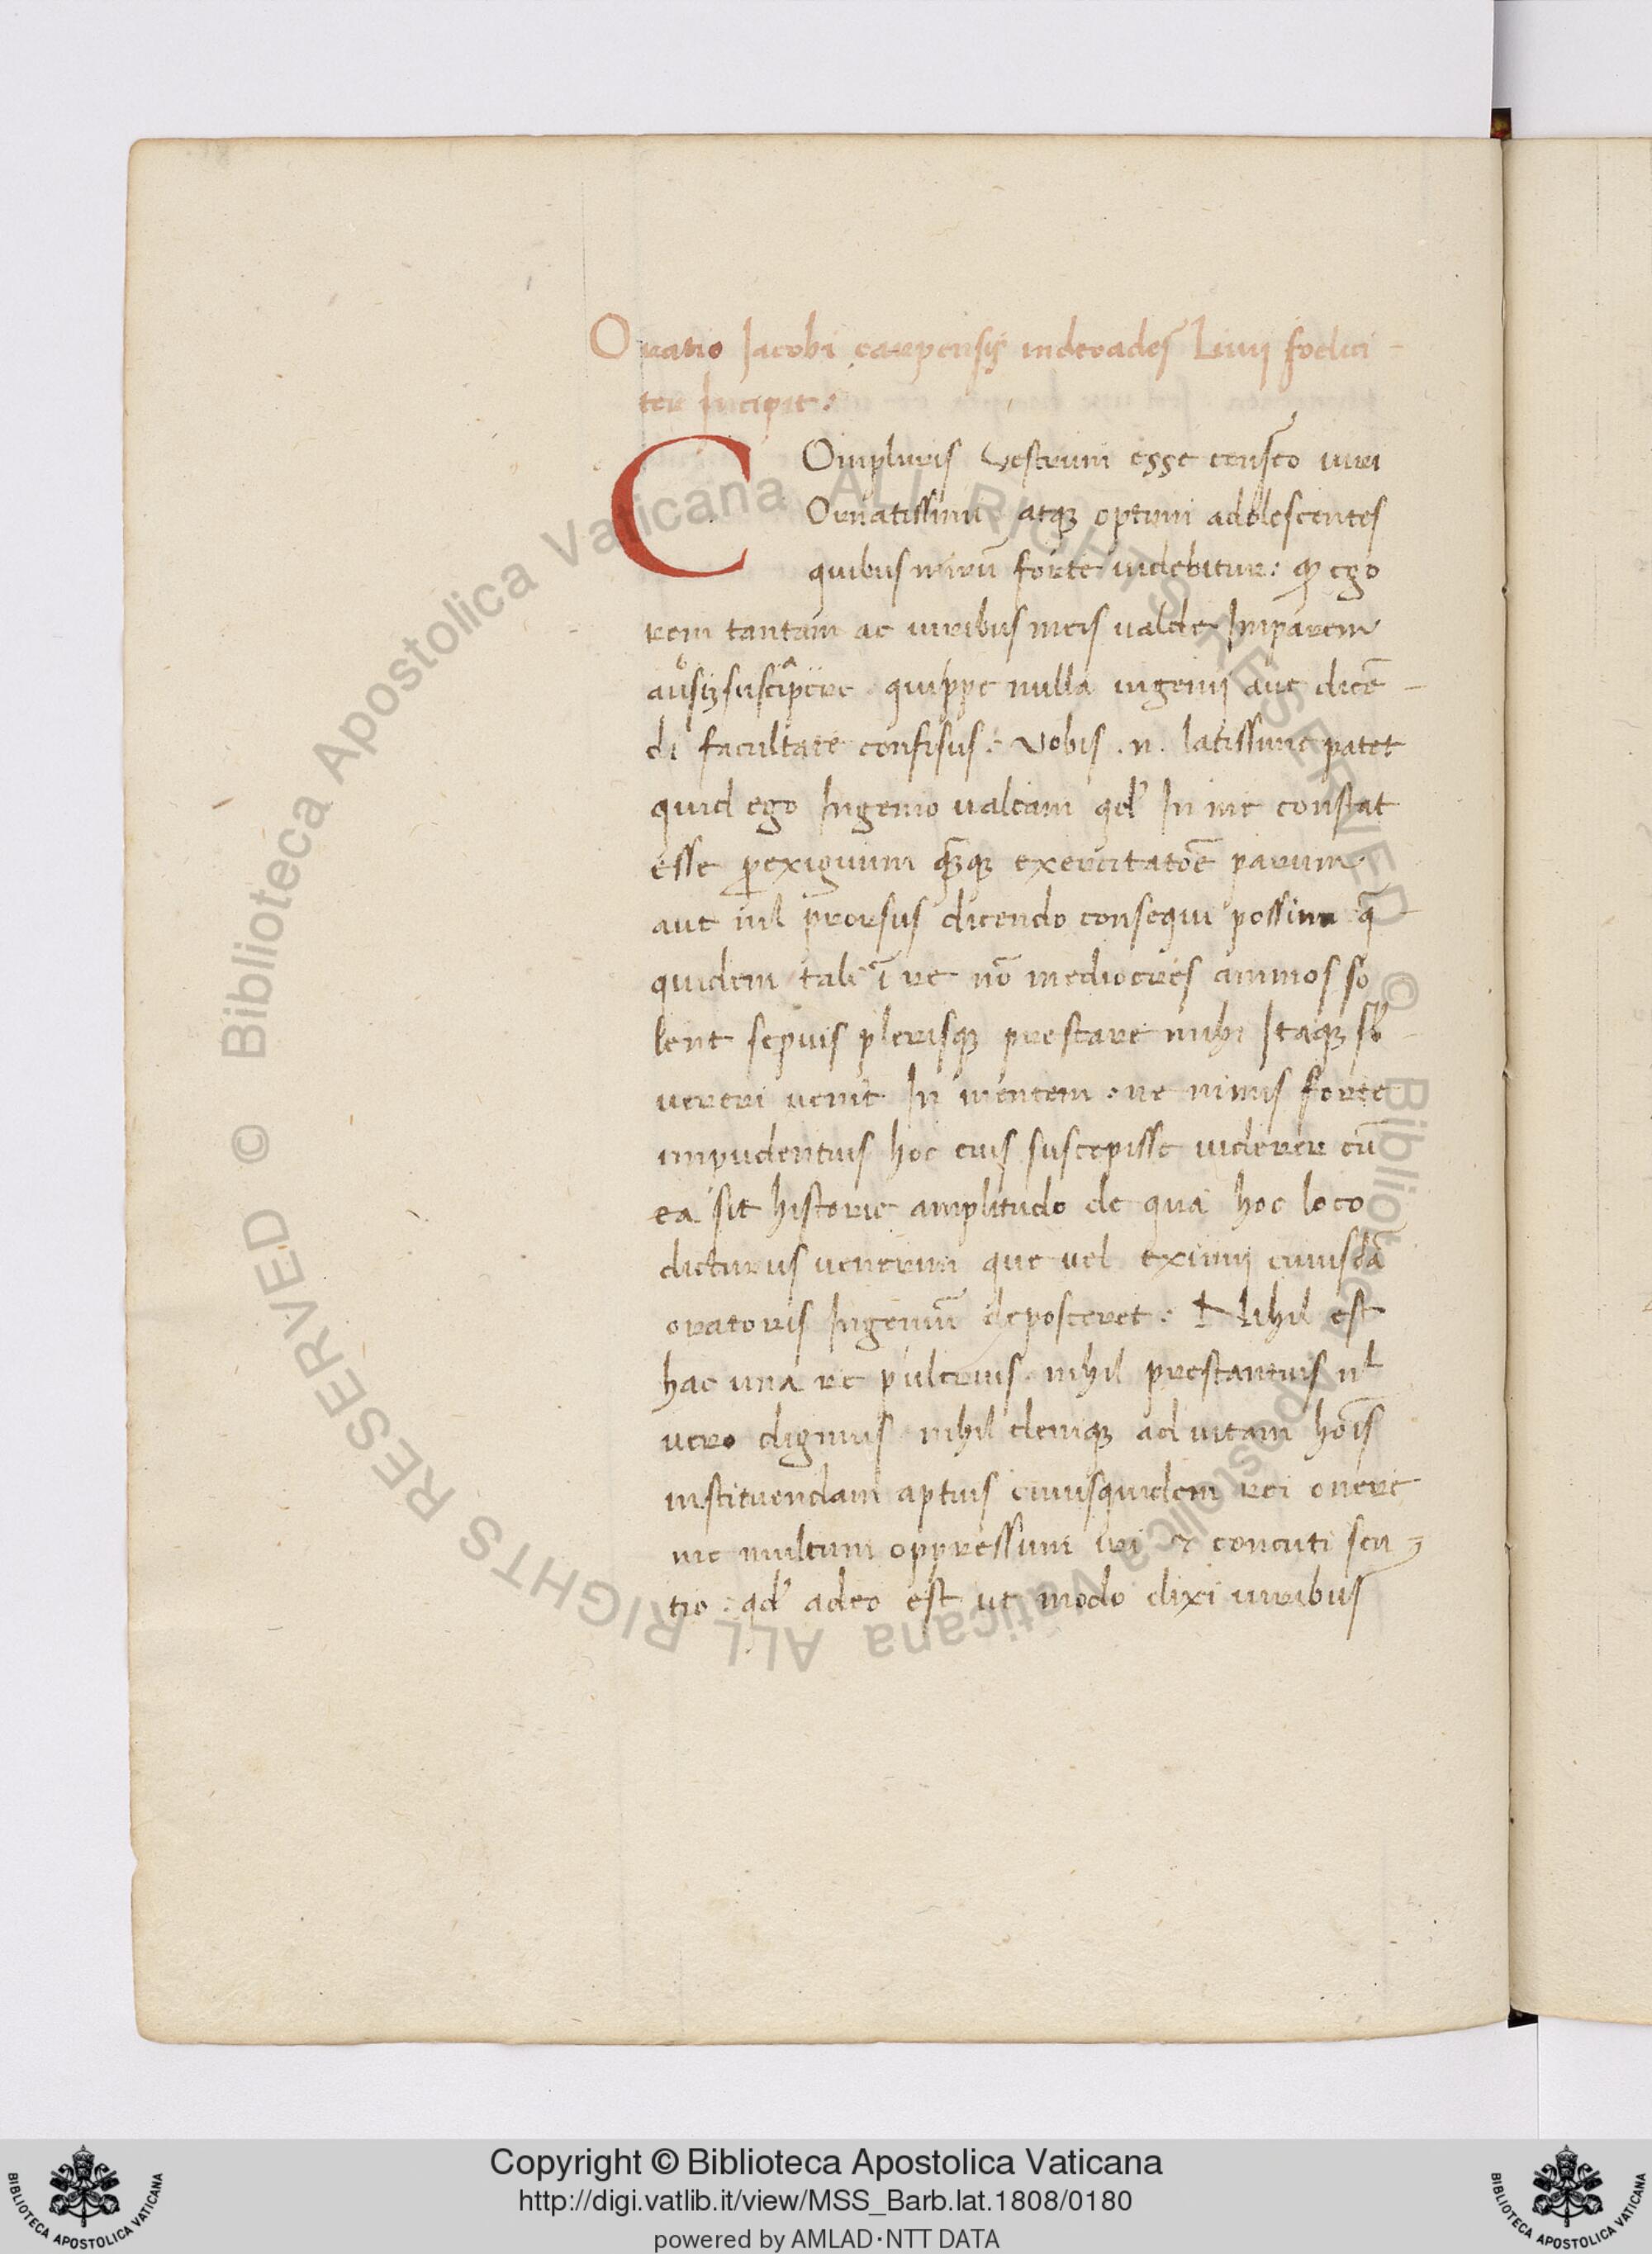 Oratio Jacobi carpensis in decades Livij foelici-
ter Incipit:
COmpluris vestrum esse censeo viri
Ornatissimi atqꝫ optimi adolescentes
quibus mirū forte videbitur: qꝫ ego
rem tantam ac viribus meis valde Imparem
suscipere quippe nulla ingenij aut dicē-
di facultate confisus: Vobis .n. latissime patet
quid ego Ingenio valeam qđ In me constat
esse ꝑexiguum exercitatōe parum
aut nil prorsus dicendo consequi possim q̄
quidem tali ī re nō mediocres animos so
lent sepius plerisqꝫ prestare mihi Itaqꝫ
vereri venit In mentem ne nimis forte
impudentius hoc suscepisse viderer cū
ea sit historie amplitudo de qua hoc loco
dicturus venerim que vel eximij cuiusdā
oratoris Ingeniū deposceret: Nihil est
hac una re pulcrius nihil prestantius nl
vero dignius nihil deniqꝫ ad vitam hoīs
instituendam aptius cuiusquidem rei onere
me multum oppressum iri & concuti sen
tio: qđ adeo est ut modo dixi viribus
© Biblioteca Apostolica Vaticana ALL RIGHTS RESERVED © Biblioteca Apostolica Vaticana ALL RIGHTS RESERVED
Copyright © Biblioteca Apostolica Vaticana
http://digi.vatlib.it/view/MSS_Barb.lat.1808/0180
powered by AMLAD·NTT DATA
BIBLIOTECA APOSTOLICA VATICANA
BIBLIOTECA APOSTOLICA VATICANA